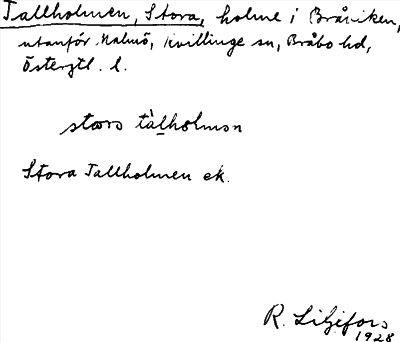 Tallholmen, Stora, holme i Bråviken,
utanför Malmö, Kvillinge sn, Bråbo hd,
Östergtl. l.
stora tàlholmən
Stora Tallholmen ek.
R. Liljefors
1928